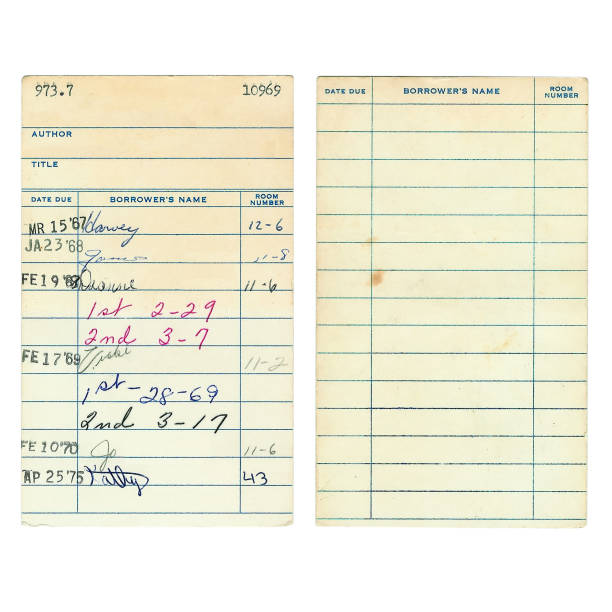 973.7 10969
AUTHOR
TITLE
DATE DUE BORROWER'S NAME ROOM NUMBER
MR 15 '67 Harvey 12-6
JA 23 '68 11-8
FE 19 '68 11-6
1st 2-29
2nd 3-7
FE 17 '69 11-2
1st - 28-69
2nd 3-17
FE 10 '70 Jo 11-6
AP 25 '75 Kathy 43
DATE DUE BORROWER'S NAME ROOM NUMBER